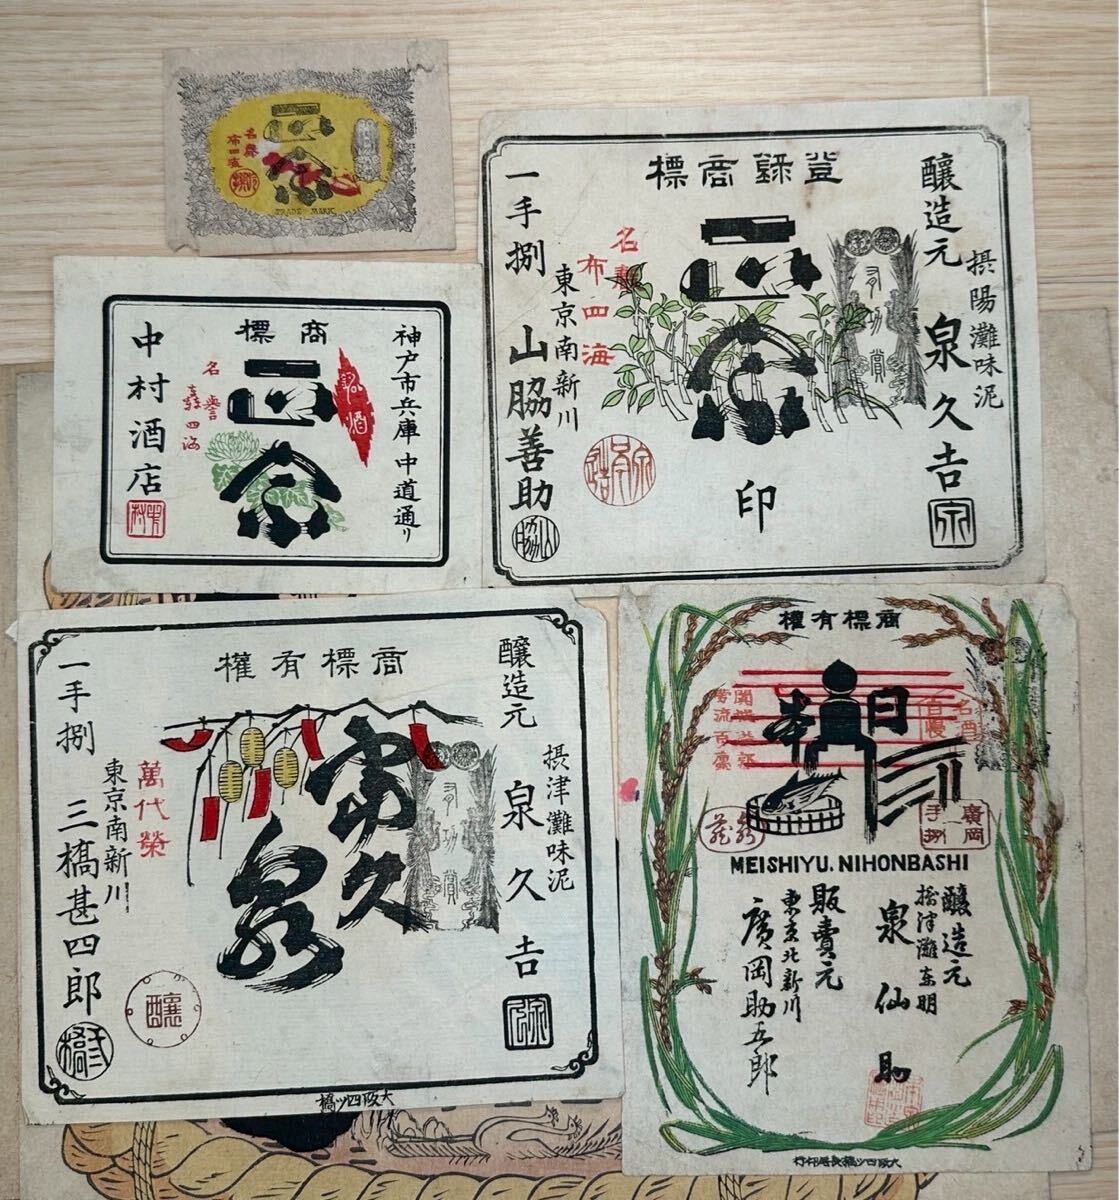 正宗
名譽
布四海
TRADE MARK
登録商標
醸造元
摂陽灘味泥
泉久𠮷
正宗
有功賞
名譽
布四海
印
一手捌
東京南新川
山脇善助
山脇
商標
神戸市兵庫中道通り
銘酒
正宗
名譽
轟四海
中村酒店
中村
商標有權
醸造元
摂津灘味泥
泉久𠮷
有功賞
宗久
泉
萬代榮
一手捌
東京南新川
三橋甚四郎
釀
三橋
大阪四ツ橋
商標有權
名酒
日本橋
MEISHIYU. NIHONBASHI
廣岡
一手捌
醸造元
摂津灘東明
泉仙助
販賣元
東京北新川
廣岡助五郎